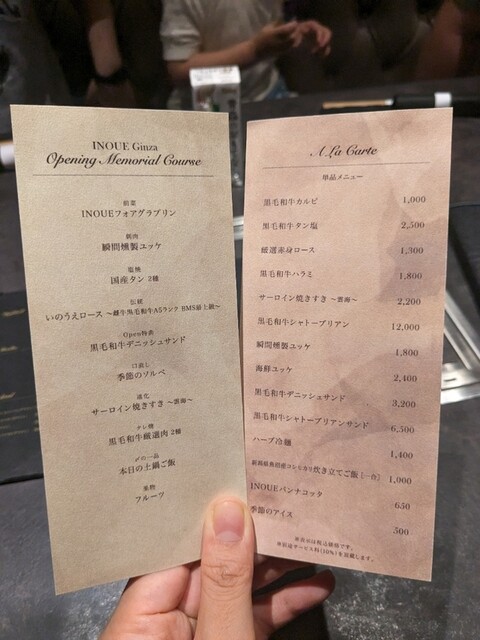 INOUE Ginza
Opening Memorial Course
前菜
INOUEフォアグラプリン
瞬間燻製ユッケ
塩焼
国産タン 2種
伝統
いのうえロース ～雌牛黒毛和牛A5ランク BMS最上級～
Open特典
黒毛和牛デニッシュサンド
口直し
季節のソルベ
進化
サーロイン焼きすき ～雲海～
タレ焼
黒毛和牛厳選肉 2種
〆の一品
本日の土鍋ご飯
果物
フルーツ
A La Carte
単品メニュー
黒毛和牛カルビ 1,000
黒毛和牛タン塩 2,500
厳選赤身ロース 1,300
黒毛和牛ハラミ 1,800
サーロイン焼きすき ～雲海～ 2,200
黒毛和牛シャトーブリアン 12,000
瞬間燻製ユッケ 1,800
海鮮ユッケ 2,400
黒毛和牛デニッシュサンド 3,200
黒毛和牛シャトーブリアンサンド 6,500
ハーブ冷麺 1,400
炊き立てご飯 (一合) 1,000
INOUEパンナコッタ 650
季節のアイス 500
※表示は税込価格です。
※別途サービス料(10%)を頂戴します。